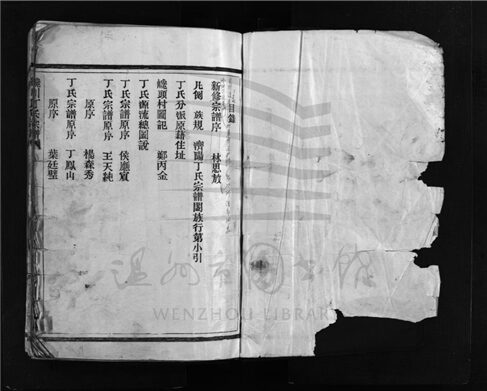 目錄
新修宗譜序 林思敖
凡例 族規 濟陽丁氏宗譜闔族行第小引
丁氏分派原籍住址
嶢頭村圖記 鄭丙金
丁氏源流總圖說
丁氏宗譜原序 侯廳宸
丁氏宗譜原序 王天純
原序 楊森秀
丁氏宗譜原序 丁鳳山
原序 葉廷璧
丁氏宗譜
温州市图书馆
WENZHOU LIBRARY